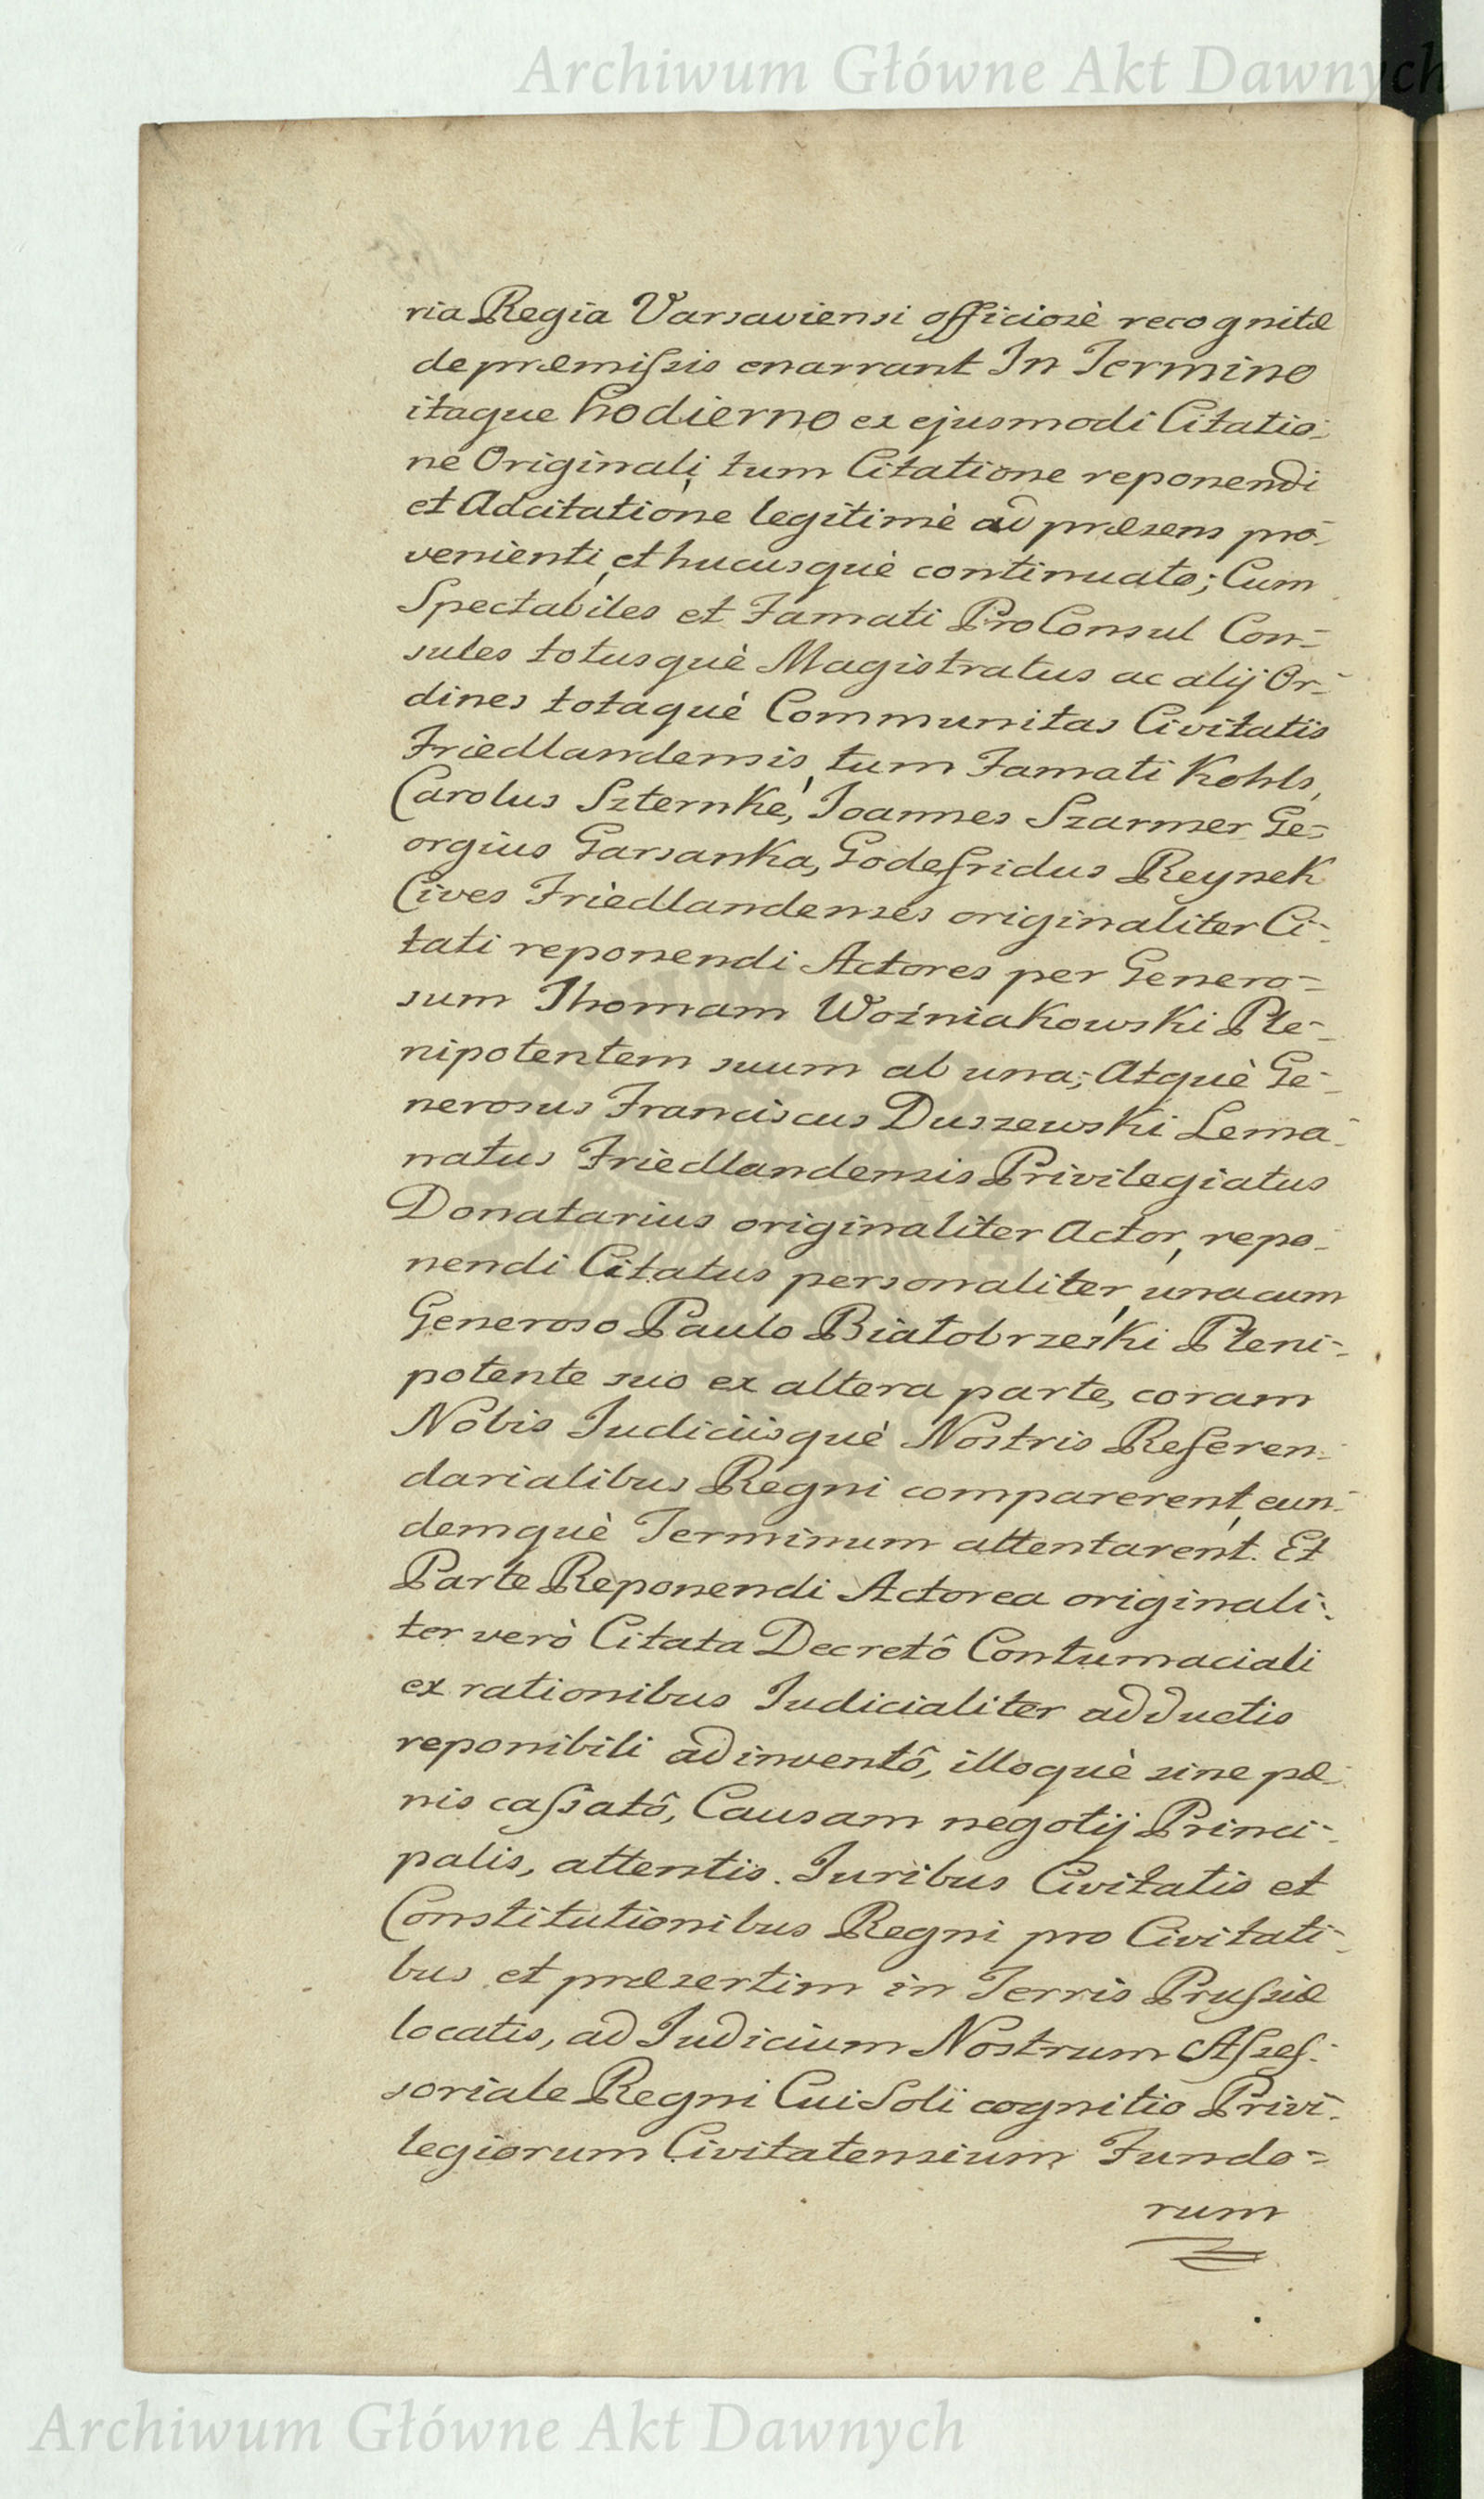 Archiwum Główne Akt Dawnych
ria Regia Varsaviensi officiosè recognitæ
de præmiſsis enarrant In Termino
itaque hodierno ex ejusmodi Citatio-
ne Originali, tum Citatione reponendi
et Adcitatione legitimè ad præsens pro-
venienti, et hucusquè continuato; Cum
Spectabiles et Famati ProConsul Con-
sules totusquè Magistratus ac alij Or-
dines totaquè Communitas Civitatis
Friedlandensis, tum Famati Kohls,
Carolus Szternke, Joannes Szarmer Ge-
orgius Garsanka, Godefridus Reynek
Cives Friedlandenses originaliter Ci-
tati reponendi Actores per Genero-
sum Thomam Woźniakowski Ple-
nipotentem suum ab una; Atquè Ge-
nerosus Franciscus Duszewski Lema-
natus Friedlandensis Privilegiatus
Donatarius originaliter Actor, repo-
nendi Citatus personaliter, unacum
Generoso Paulo Białobrzeski Pleni-
potente suo ex altera parte, coram
Nobis Judiciisquè Nostris Referen-
darialibus Regni comparerent, eun-
demquè Terminum attentarent. Et
Parte Reponendi Actorea originali-
ter verò Citata Decretô Contumaciali
ex rationibus Judicialiter adductis
reponibili adinventô, illoquè sine pœ-
nis caſsatô, Causam negotij Princi-
palis, attentis Juribus Civitatis et
Constitutionibus Regni pro Civitati-
bus et præsertim in Terris Pruſsiæ
locatis, ad Judicium Nostrum Aſseſ-
soriale Regni Cui Soli cognitio Privi-
legiorum Civitatensium Fundo-
rum
Archiwum Główne Akt Dawnych